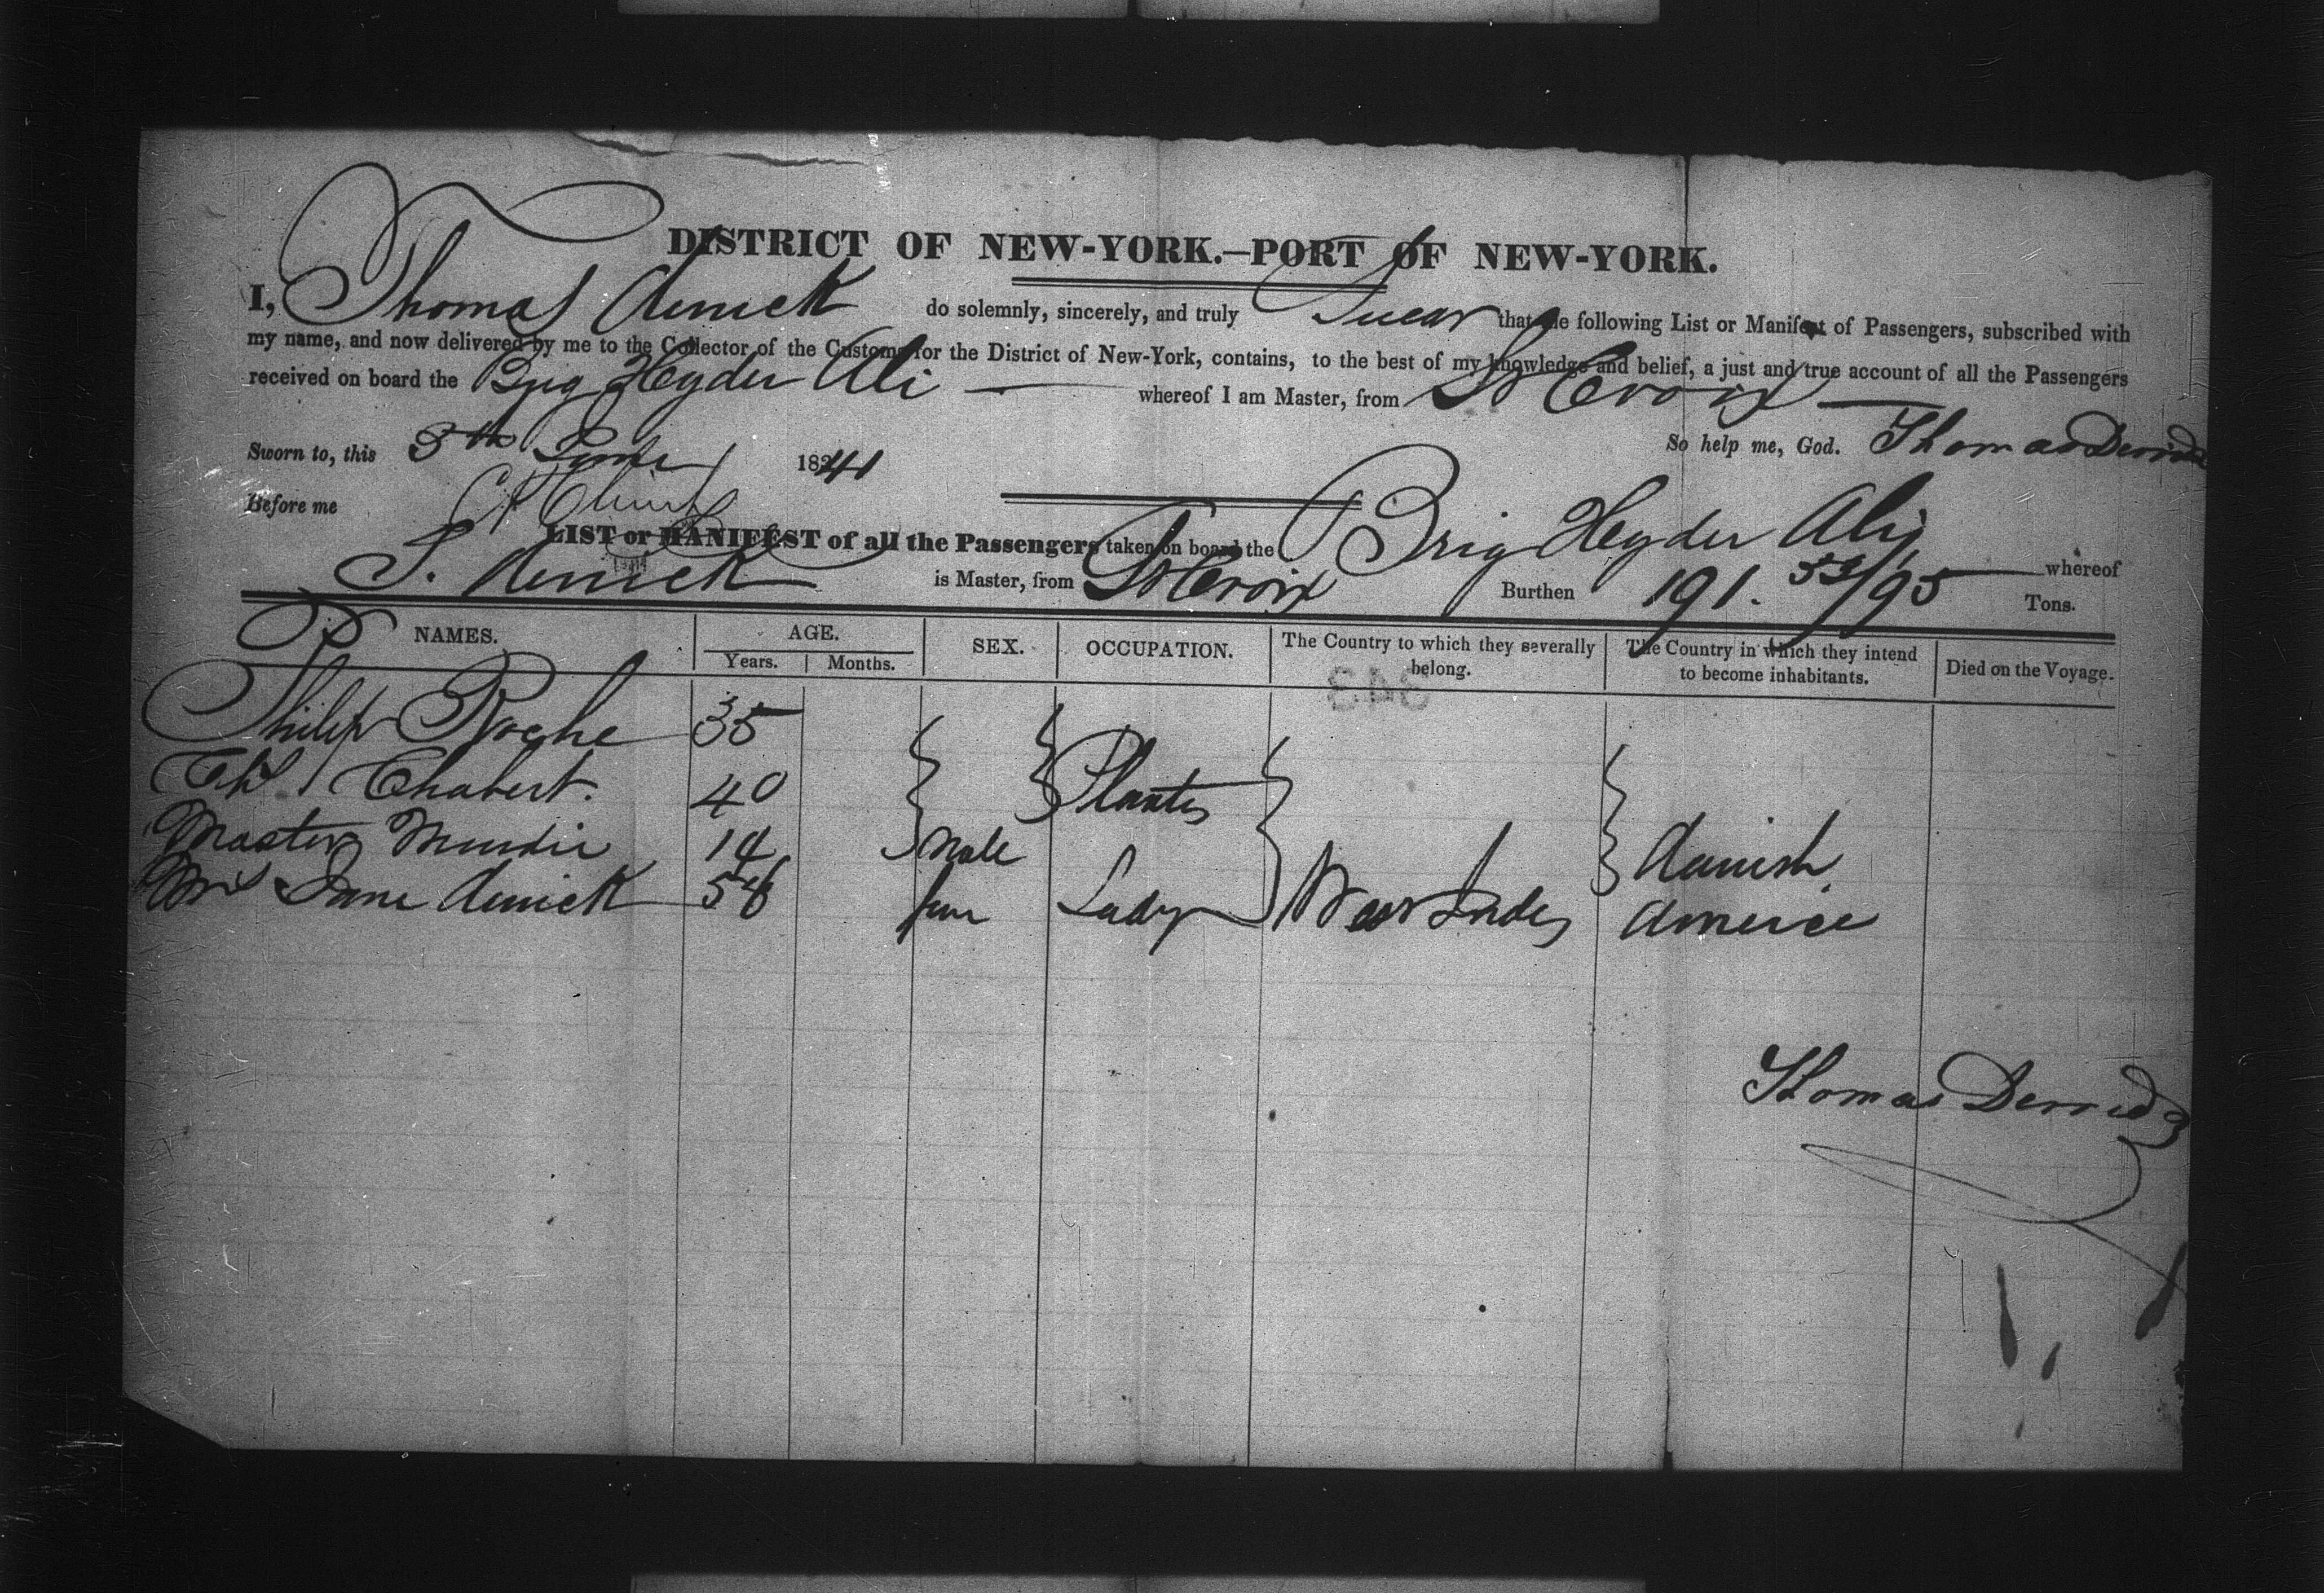 DISTRICT OF NEW-YORK.—PORT OF NEW-YORK.
I, Thomas Derrick do solemnly, sincerely, and truly Swear that the following List or Manifest of Passengers, subscribed with
my name, and now delivered by me to the Collector of the Customs for the District of New-York, contains, to the best of my knowledge and belief, a just and true account of all the Passengers
received on board the Brig Heyder Ali — whereof I am Master, from St Croix —
Sworn to, this 5th June 1841 So help me, God. Thomas Derrick
Before me
LIST or MANIFEST of all the Passengers taken on board the Brig Heyder Ali whereof
T. Derrick is Master, from St Croix Burthen 191. 53/95 Tons.
NAMES. AGE. SEX. OCCUPATION. The Country to which they severally belong. The Country in which they intend to become inhabitants. Died on the Voyage.
Years. Months.
Philip Roche 35
Chabert. 40 Planters
Master 14 Male Danish
Mrs Jane Derrick 56 fem Lady West Indes America
Thomas Derrick